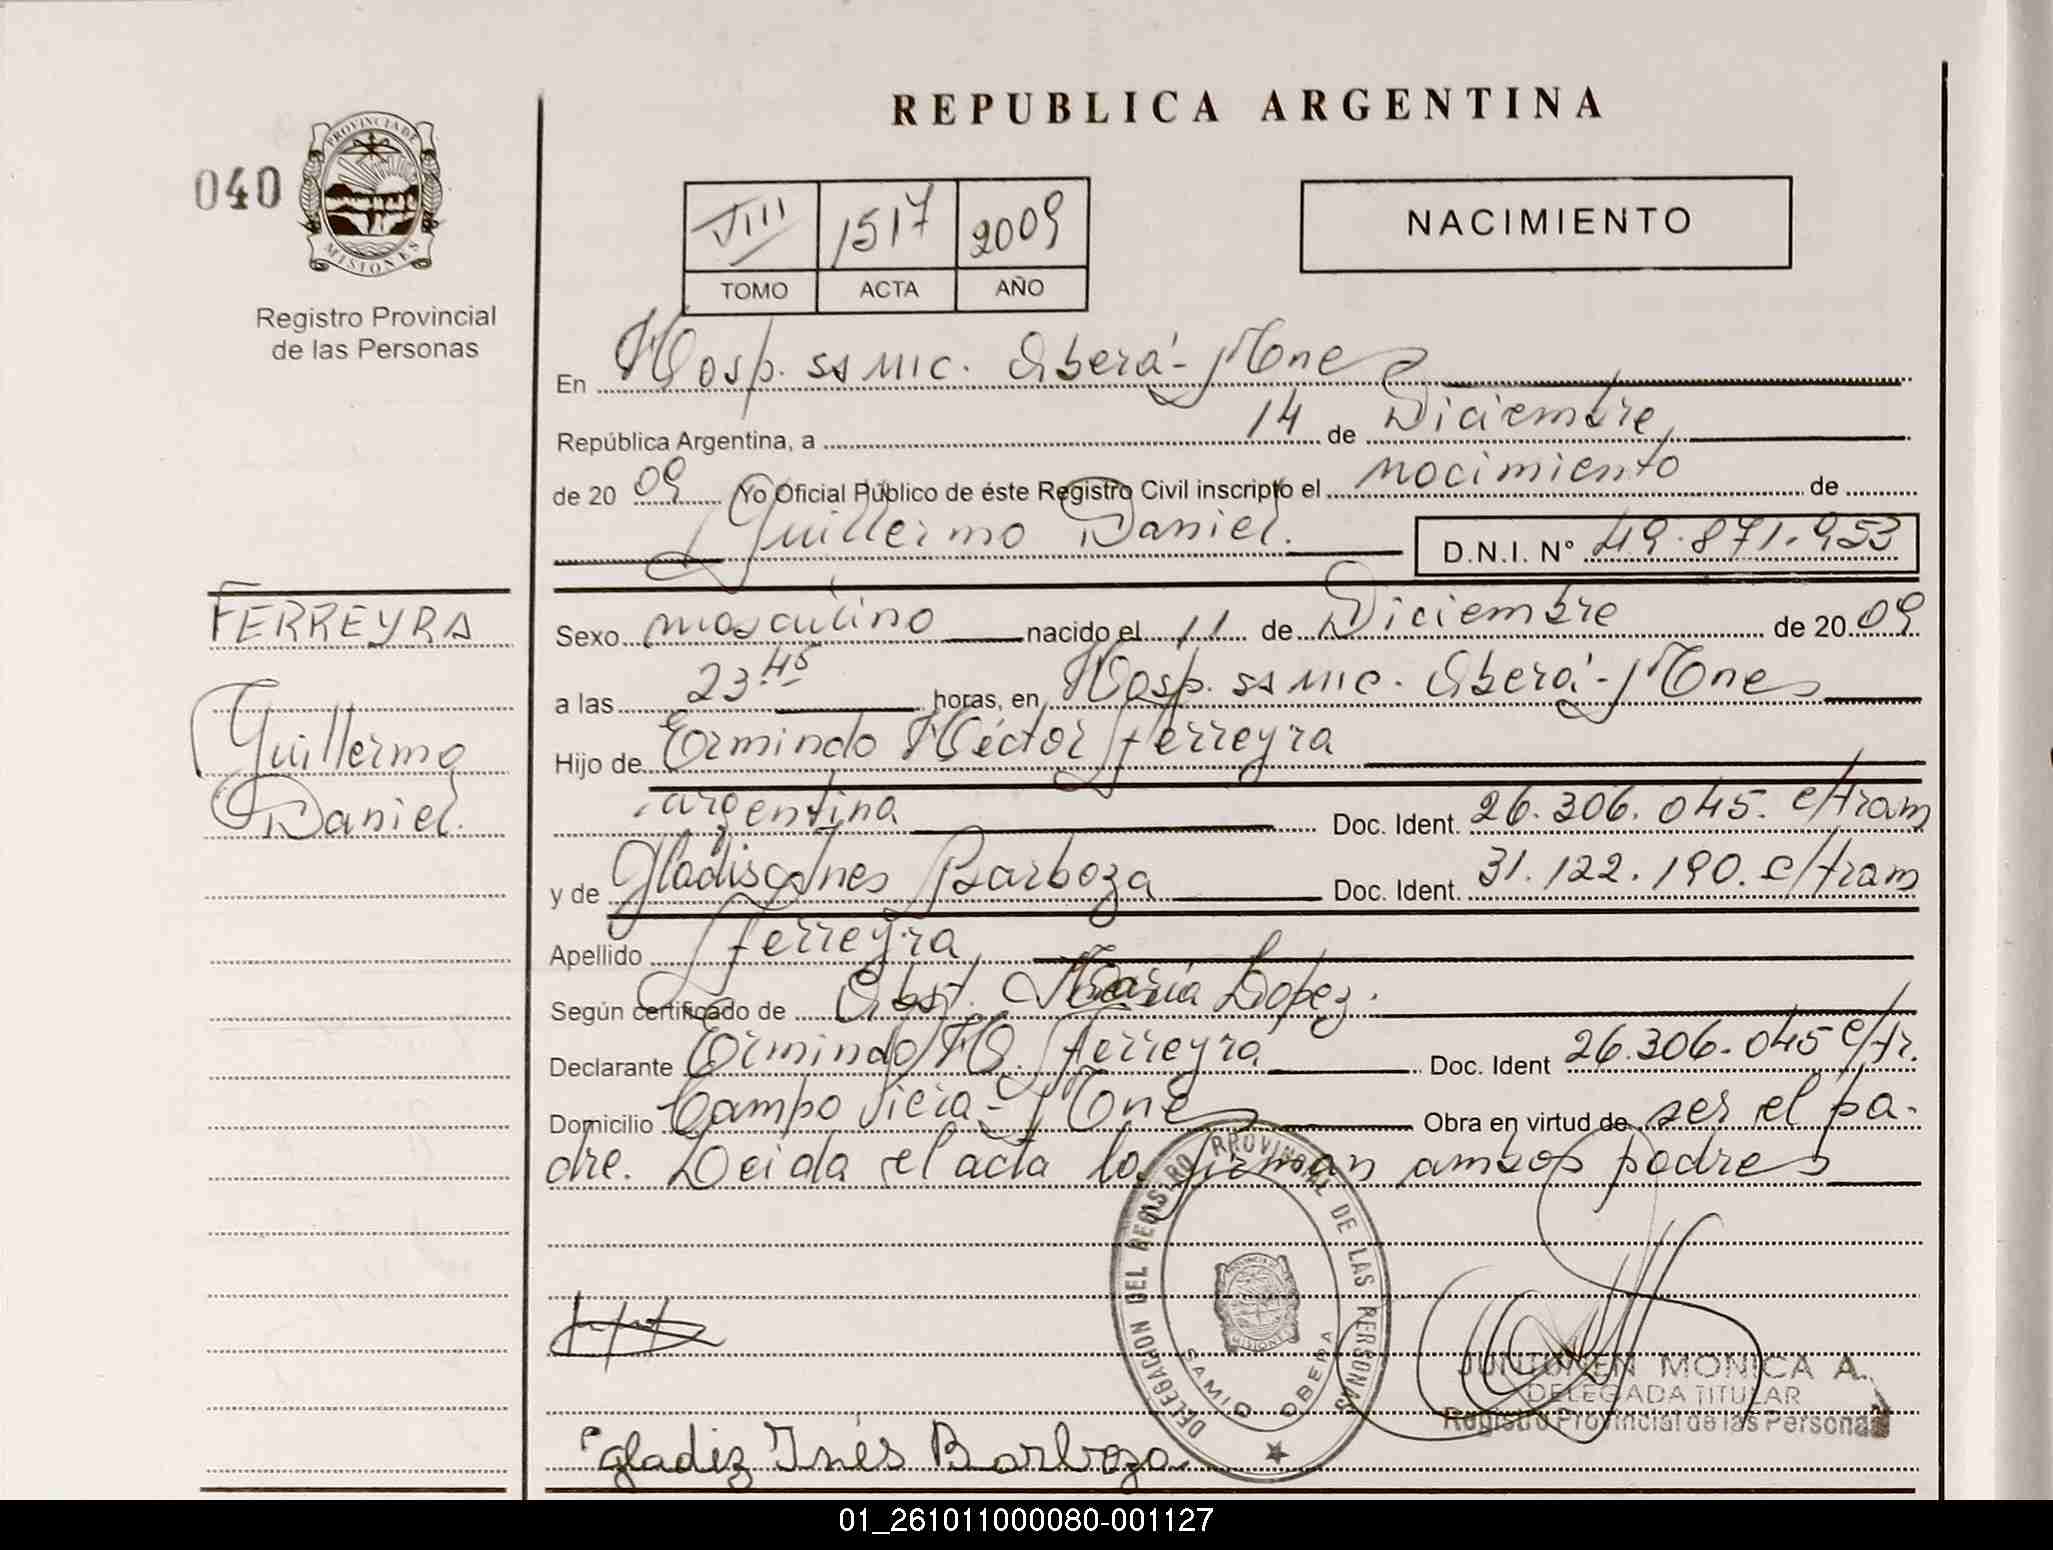 REPUBLICA ARGENTINA
040
PROVINCIA DE
MISIONES
Registro Provincial
de las Personas
VIII 1517 2009
TOMO ACTA AÑO
NACIMIENTO
En Hosp. SAMIC. Oberá - Mnes
República Argentina, a 14 de Diciembre
de 20 09 Yo Oficial Público de éste Registro Civil inscripto el nacimiento de
Guillermo Daniel. D.N.I. N° 49.871.953
FERREYRA
Guillermo
Daniel.
Sexo masculino nacido el 11 de Diciembre de 20 09
a las 23.45 horas, en Hosp. SAMIC. Oberá - Mnes
Hijo de Ermindo Héctor Ferreyra
argentina Doc. Ident. 26.306.045. c/tram
y de Gladis Ines Barboza Doc. Ident. 31.122.190. c/tram
Apellido Ferreyra
Según certificado de Obst. María Lopez.
Declarante Ermindo H. Ferreyra Doc. Ident 26.306.045 c/tr.
Domicilio Campo Viera - Mnes Obra en virtud de ser el pa-
dre. Leida el acta la firman ambos padres
DELEGACION DEL REGISTRO PROVINCIAL DE LAS PERSONAS
SAMIC OBERA
MISIONES
MONICA A.
DELEGADA TITULAR
Registro Provincial de las Personas
gladiz Inés Barboza
01_261011000080-001127